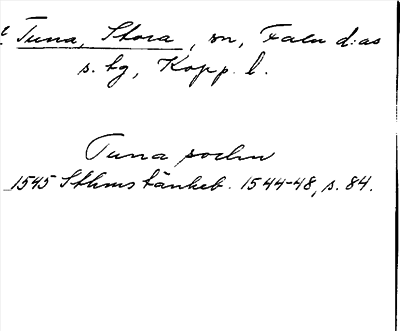 Tuna, Stora, sn, Falu d:as
s. tg, Kopp. l.
Tuna sochn
1545 Sthms tänkeb. 1544-48, s. 84.